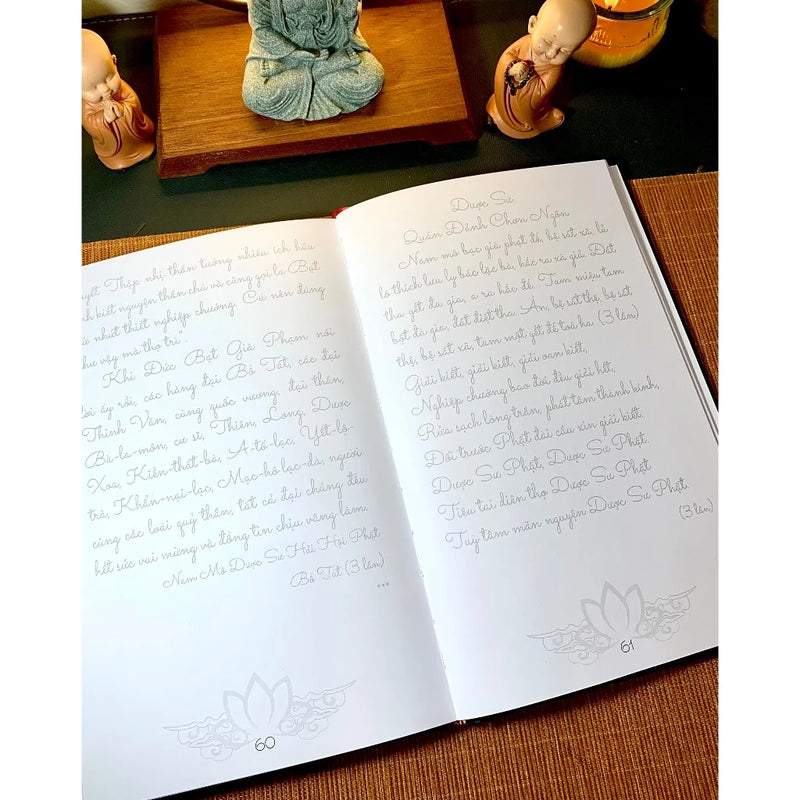 Thập nhị thần tướng nhiêu ích hữu
kiết nguyện thần chú và cũng gọi là Bạt
nhứt thiết nghiệp chướng. Cứ nên đúng
như vậy mà thọ trì".
Khi Đức Bạt Già Phạm nói
lời ấy rồi, các hàng đại Bồ Tát, các đại
Thinh Văn, cùng quốc vương, đại thần,
Bà-la-môn, cư sĩ, Thiên, Long, Dược
Xoa, Kiền-thát-bà, A-tố-lạc, Yết-lộ-
trà, Khẩn-nại-lạc, Mạc-hô lạc-dà, người
cùng các loài quỷ thần, tất cả đại chúng đều
hết sức vui mừng và đồng tin chịu vâng làm.
Nam Mô Dược Sư Hải Hội Phật
Bồ Tát (3 lần)
***
60
Dược Sư
Quán Đảnh Chơn Ngôn
Nam mô bạc già phạt đế, bệ sát xã, lủ
lô thích lưu ly bác lặc bà, hắc ra xà giả. Đát
tha yết đa gia, a ra hắc đế. Tam miệu tam
bột đà gia, đát điệt tha. Án, bệ sát thệ, bệ sát
thệ, bệ sát xã, tam một yết đế toá ha. (3 lần)
Giải kiết, giải kiết, giải oan kiết,
Nghiệp chướng bao đời đều giải hết,
Rửa sạch lòng trần, phát tâm thành kính,
Đối trước Phật đài cầu xin giải kiết.
Dược Sư Phật, Dược Sư Phật,
Tiêu tai diên thọ Dược Sư Phật
Tuỳ tâm mãn nguyện Dược Sư Phật.
(3 lần)
61